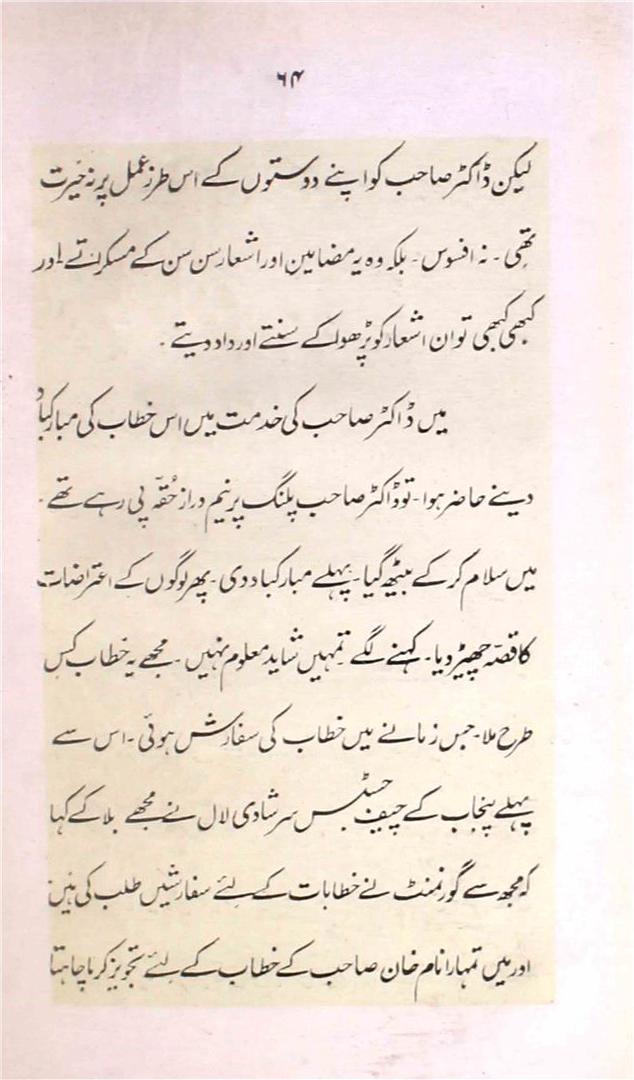 ۶۴
لیکن ڈاکٹر صاحب کو اپنے دوستوں کے اس طرزِ عمل پر نہ حیرت
تھی ۔ نہ افسوس ۔ بلکہ وہ یہ مضامین اور اشعار سن سن کے مسکراتے اور
کبھی کبھی تو ان اشعار کو پڑھوا کے سنتے اور داد دیتے ۔
میں ڈاکٹر صاحب کی خدمت میں اس خطاب کی مبارکباد
دینے حاضر ہوا ۔ تو ڈاکٹر صاحب پلنگ پر نیم دراز حُقّہ پی رہے تھے ۔
میں سلام کر کے بیٹھ گیا ۔ پہلے مبارکباد دی ۔ پھر لوگوں کے اعتراضات
کا قصّہ چھیڑ دیا ۔ کہنے لگے تمہیں شاید معلوم نہیں ۔ مجھے یہ خطاب کس
طرح ملا ۔ جس زمانے میں خطاب کی سفارش ہوئی ۔ اس سے
پہلے پنجاب کے چیف جسٹس سر شادی لال نے مجھے بلا کے کہا
کہ مجھ سے گورنمنٹ نے خطابات کے لئے سفارشیں طلب کی ہیں
اور میں تمہارا نام خان صاحب کے خطاب کے لئے تجویز کرنا چاہتا